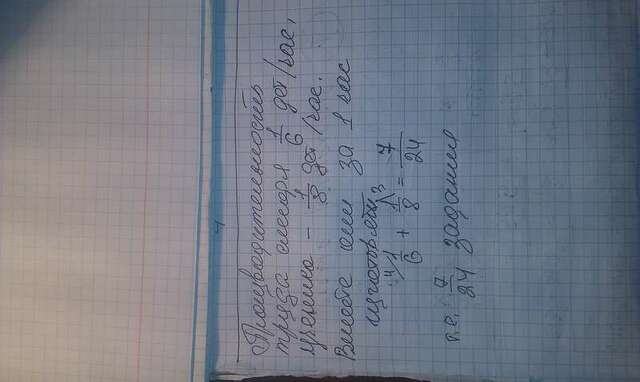 Производительность
труда слесаря 1/6 дет/час,
ученика - 1/8 дет/час.
Вместе они за 1 час
изготовят
4\1/6 + 1/8/3 = 7/24
т.е. 7/24 задания